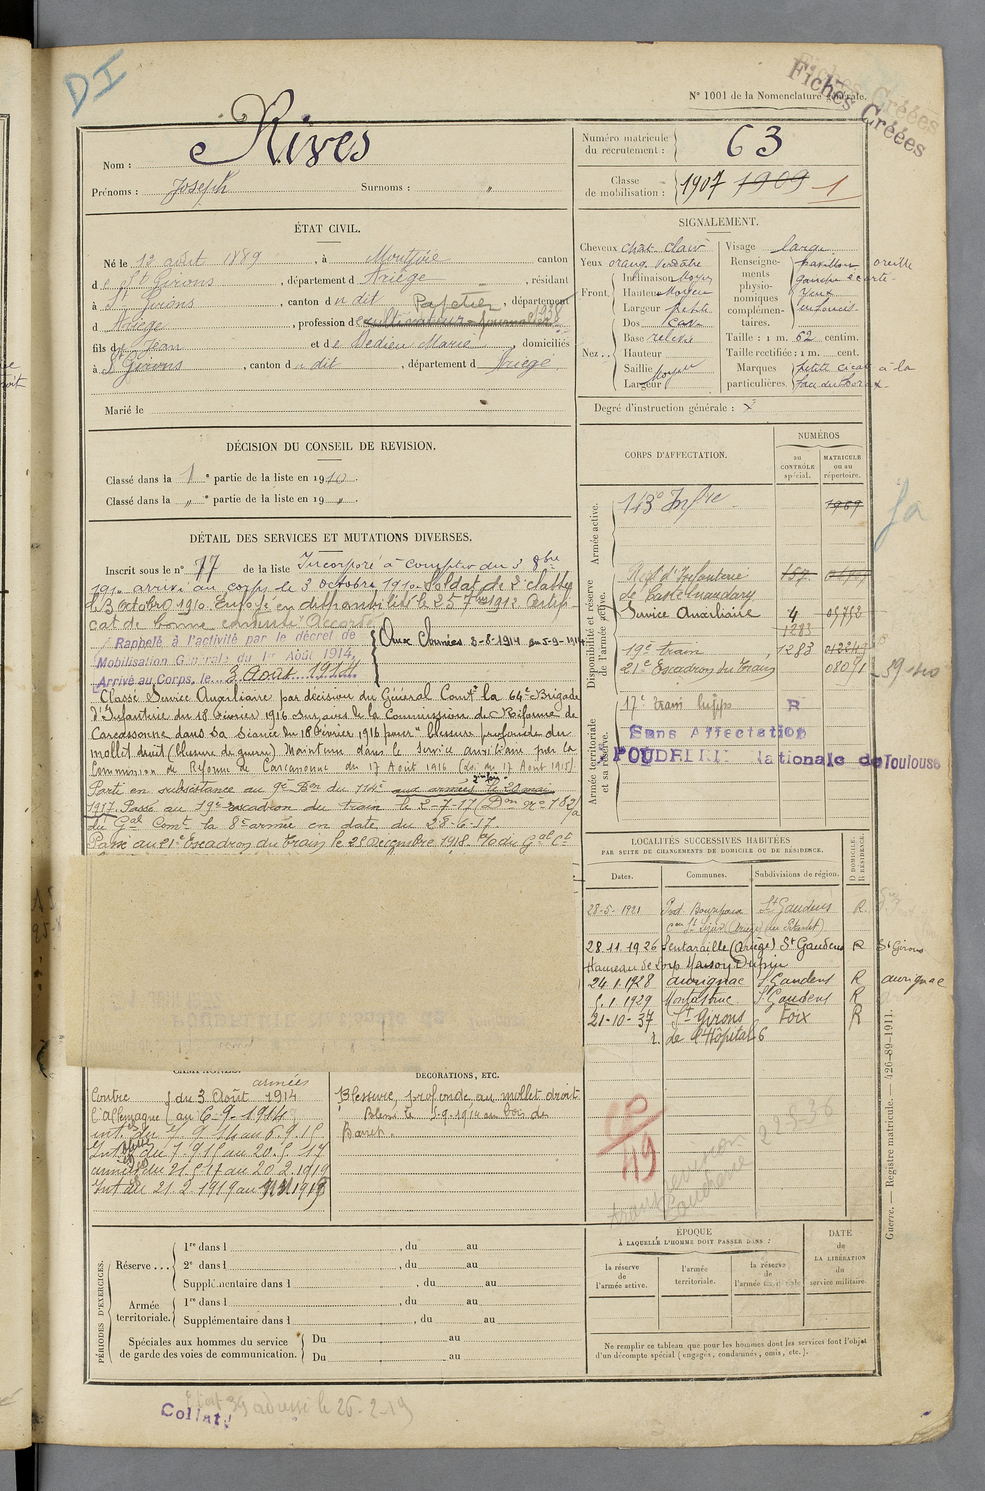 DI
N° 1001 de la Nomenclature générale.
Fiches Créées
Nom : Rives
Prénoms : Joseph Surnoms : "
Numéro matricule du recrutement : 63
Classe de mobilisation : 1907 1909 -1
ÉTAT CIVIL.
Né le 12 août 1889, à canton
de St Girons, département d Ariège, résidant
à St Girons, canton du dit Papetier, département
d Ariège, profession de cultivateur - journalier
fils de Jean et de Dedieu Marie, domiciliés
à St Girons, canton du dit, département d Ariège
Marié le
SIGNALEMENT.
Cheveux chat. clair Visage large
Yeux orang. verdâtre Renseignements physionomiques complémentaires. pavillon oreille gauche écarté - Yeux enfoncés.
Front. Inclinaison Moyen
Hauteur Moyen
Largeur petite
Nez.. Dos cave
Base relevée
Hauteur
Saillie Moyen
Largeur
Taille : 1 m. 62 centim.
Taille rectifiée : 1 m. cent.
Marques particulières. petite cicat. à la
Degré d'instruction générale :
DÉCISION DU CONSEIL DE REVISION.
Classé dans la 1e partie de la liste en 1910
Classé dans la " e partie de la liste en 19 "
DÉTAIL DES SERVICES ET MUTATIONS DIVERSES.
Inscrit sous le n° 77 de la liste Incorporé à compter du 3 8bre
1910 arrivé au corps le 3 octobre 1910. Soldat de 2e classe
le 3 octobre 1910. Envoyé en disponibilité le 25 7bre 1912 Certifi-
cat de bonne conduite "Accordé"
Rappelé à l'activité par le décret de
Mobilisation Générale du 1er Août 1914,
Arrivé au Corps, le 3 Août 1914.
Aux Armées 3-8-1914 au 5-9-1914
Classé Service Auxiliaire par décision du Général Comt la 64e Brigade
d'Infanterie du 18 février 1916 sur avis de la Commission de Réforme de
Carcassonne dans sa séance du 18 février 1916 pour "blessure profonde du
mollet droit (blessure de guerre) Maintenu dans le Service auxiliaire par la
Commission de Réforme de Carcassonne du 17 Août 1916 (Loi du 17 Août 1915)
Porté en subsistance au 9e Bon du 114e aux armées le 20 mai
1917. Passé au 19e escadron du train le 2-7-17 (Don n° 182/a
du Gal Comt la 8e armée en date du 28-6-17.
Passé au 21e Escadron du train le 25 Décembre 1918
CORPS D'AFFECTATION.
NUMÉROS
au CONTRÔLE spécial.
MATRICULE ou au répertoire.
Armée active.
143e Infre 1969
Disponibilité et réserve de l'armée active.
Regt d'Infanterie 157
de Castelnaudary
Service Auxiliaire 4 05752
1283
19e train 1283
21e Escadron du Train 08091
Armée territoriale et sa réserve.
17e train R
Sans Affectation
POUDRERIE Nationale de Toulouse
LOCALITÉS SUCCESSIVES HABITÉES
PAR SUITE DE CHANGEMENTS DE DOMICILE OU DE RÉSIDENCE.
Dates. Communes. Subdivisions de région. D DOMICILE. R RÉSIDENCE.
28-5-1921 St Gaudens R
28.11.1926 Lentaraille (Ariège) St Gaudens R St Girons
Hameau de Lorp Maison Dupin
24.1.1928 aurignac St Gaudens R aurignac
5.1.1929 Montastruc St Gaudens R
21-10-37 St Girons Foix R
r. de l'Hôpital 6
CAMPAGNES.
Contre l'Allemagne armées
du 3 Août 1914
au 6-9-1914
int. du 7.9.14 au 6.9.15
Int. du 7.9.15 au 20.5.17
armées du 21.5.17 au 20.2.1919
Int du 21.2.1919 au
DÉCORATIONS, ETC.
Blessure profonde au mollet droit
Blessé le 5-9-1914 au bois de
49
PÉRIODES D'EXERCICES.
Réserve ... 1re dans l , du au
2e dans l , du au
Supplémentaire dans l , du au
Armée territoriale. 1re dans l , du au
Supplémentaire dans l , du au
Spéciales aux hommes du service de garde des voies de communication. Du au
Du au
ÉPOQUE
À LAQUELLE L'HOMME DOIT PASSER DANS :
la réserve de l'armée active.
l'armée territoriale.
la réserve de l'armée territoriale
DATE de LA LIBÉRATION du service militaire.
Ne remplir ce tableau que pour les hommes dont les services font l'objet
d'un décompte spécial (engagés, condamnés, omis, etc.).
Guerre. — Registre matricule. — 426-89-1911.
État 39 adressé le 26-2-19
Collat